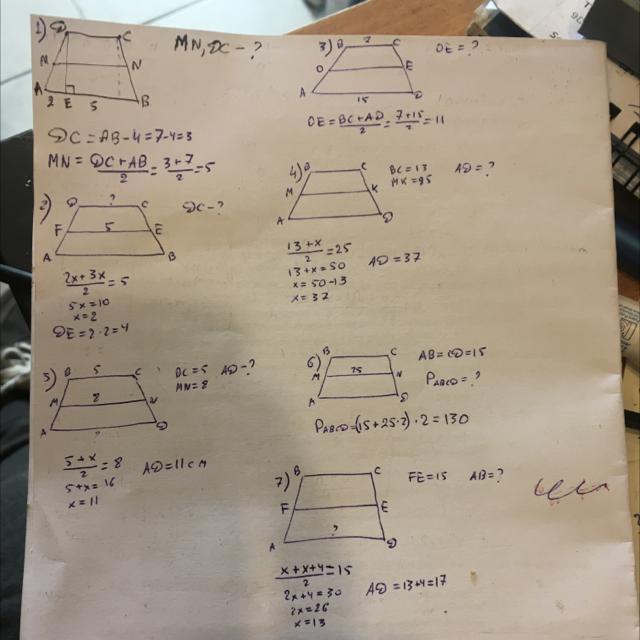 1) D C
MN, DC - ?
M N
A 2 E 5 B
DC = AB - 4 = 7 - 4 = 3
MN = DC + AB / 2 = 3 + 7 / 2 = 5
2) D ? C
DC - ?
F 5 E
A B
2x + 3x / 2 = 5
5x = 10
x = 2
DE = 2 · 2 = 4
3) B 7 C
OE = ?
O E
A 15 D
OE = BC + AD / 2 = 7 + 15 / 2 = 11
4) B C
BC = 13 AD = ?
MK = 25
M K
A D
13 + x / 2 = 25
13 + x = 50 AD = 37
x = 50 - 13
x = 37
5) B 5 C
BC = 5 AD - ?
MN = 8
M 8 N
A ? D
5 + x / 2 = 8 AD = 11 см
5 + x = 16
x = 11
6) B C
AB = CD = 15
M 25 N
PABCD = ?
A D
PABCD = (15 + 25 · 2) · 2 = 130
7) B C
FE = 15 AB = ?
F E
A ? D
x + x + 4 / 2 = 15
2x + 4 = 30 AD = 13 + 4 = 17
2x = 26
x = 13